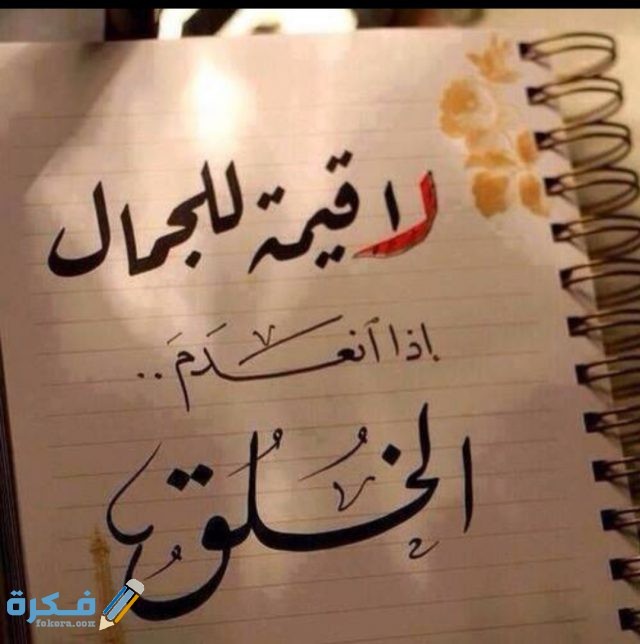 لا قيمة للجمال
إذا انعدَمَ..
الخُلُق
فكرة
fekera.com